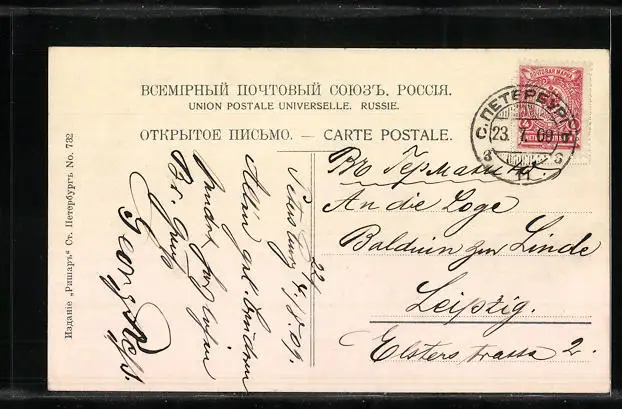 ВСЕМІРНЫЙ ПОЧТОВЫЙ СОЮЗЪ. РОССІЯ.
UNION POSTALE UNIVERSELLE. RUSSIE.
ОТКРЫТОЕ ПИСЬМО. — CARTE POSTALE.
ПОЧТОВАЯ МАРКА
С. ПЕТЕРБУРГЪ
23. 7. 09
Въ Германію.
An die Loge
Balduin zur Linde
Leipzig.
Elsterstrasse 2.
Petersburg
Allen gel. Brüdern
Georg
Изданіе „Ришаръ“ Ст. Петербургъ No. 732